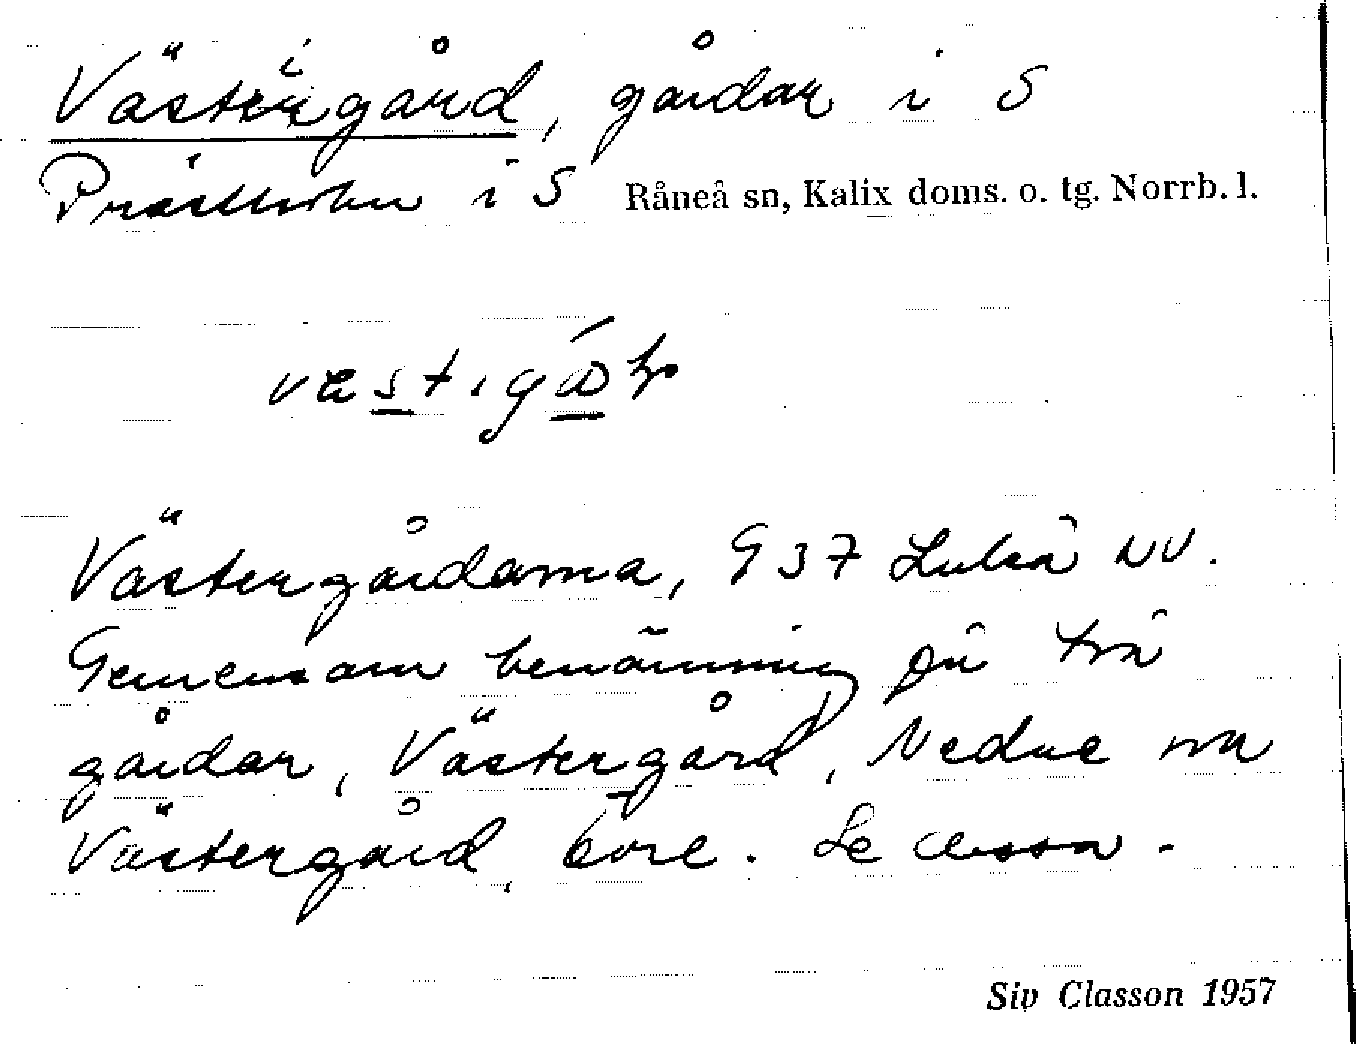 Västergård, gårdar i S
Prästholm i S Råneå sn, Kalix doms. o. tg. Norrb. l.
Västergårdarna, 937 Luleå NV.
Gemensam benämning på två
gårdar, Västergård, Nedre och
Västergård, övre. Se dessa.
Siv Classon 1957